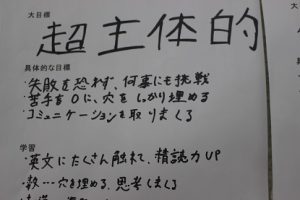 大目標
超主体的
具体的な目標
・失敗を恐れず、何事にも挑戦
・苦手を0に、穴をしっかり埋める
・コミュニケーションを取りまくる
学習
・英文にたくさん触れて、精読力UP
・数…穴を埋める、思考しまくる